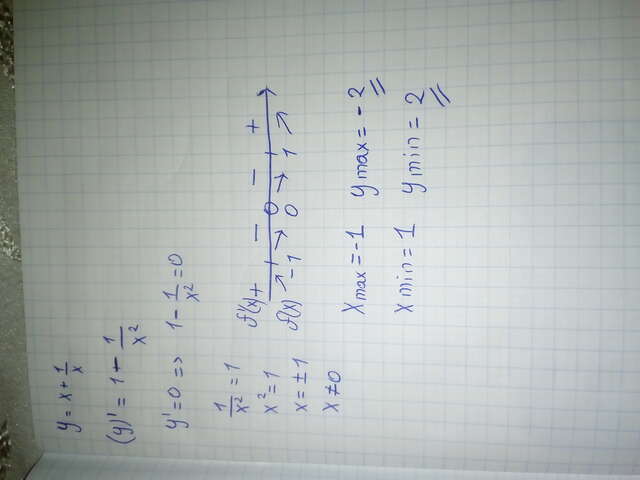 y = x + 1/x
(y)' = 1 - 1/x²
y' = 0 => 1 - 1/x² = 0
1/x² = 1
x² = 1
x = ±1
x ≠ 0
f'(x) + - - +
f(x) ↗ -1 ↘ 0 ↘ 1 ↗
0
x max = -1 y max = -2
x min = 1 y min = 2